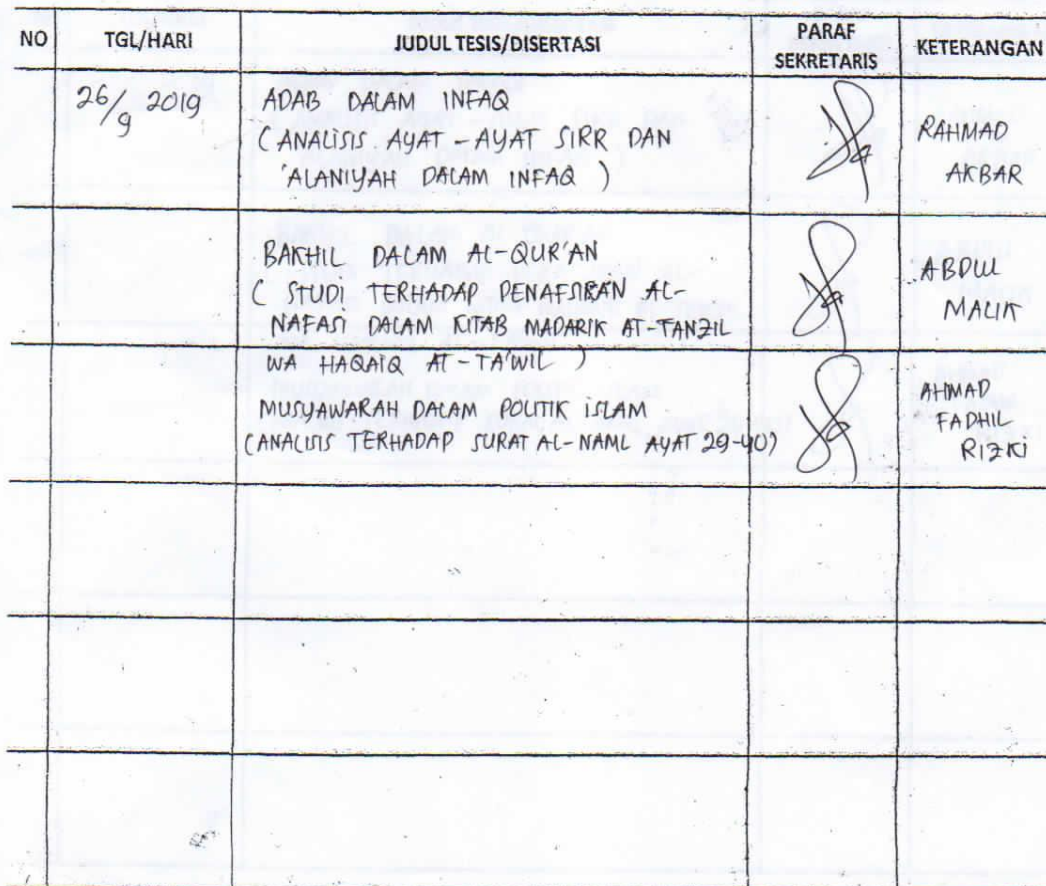 NO TGL/HARI JUDUL TESIS/DISERTASI PARAF SEKRETARIS KETERANGAN
26/9 2019 ADAB DALAM INFAQ
(ANALISIS AYAT-AYAT SIRR DAN
'ALANIYAH DALAM INFAQ)
RAHMAD
AKBAR
BAKHIL DALAM AL-QUR'AN
(STUDI TERHADAP PENAFSIRAN AL-
NAFASI DALAM KITAB MADARIK AT-TANZIL
WA HAQAIQ AT-TA'WIL)
ABDUL
MALIK
MUSYAWARAH DALAM POLITIK ISLAM
(ANALISIS TERHADAP SURAT AL-NAML AYAT 29-40)
AHMAD
FADHIL
RIZKI